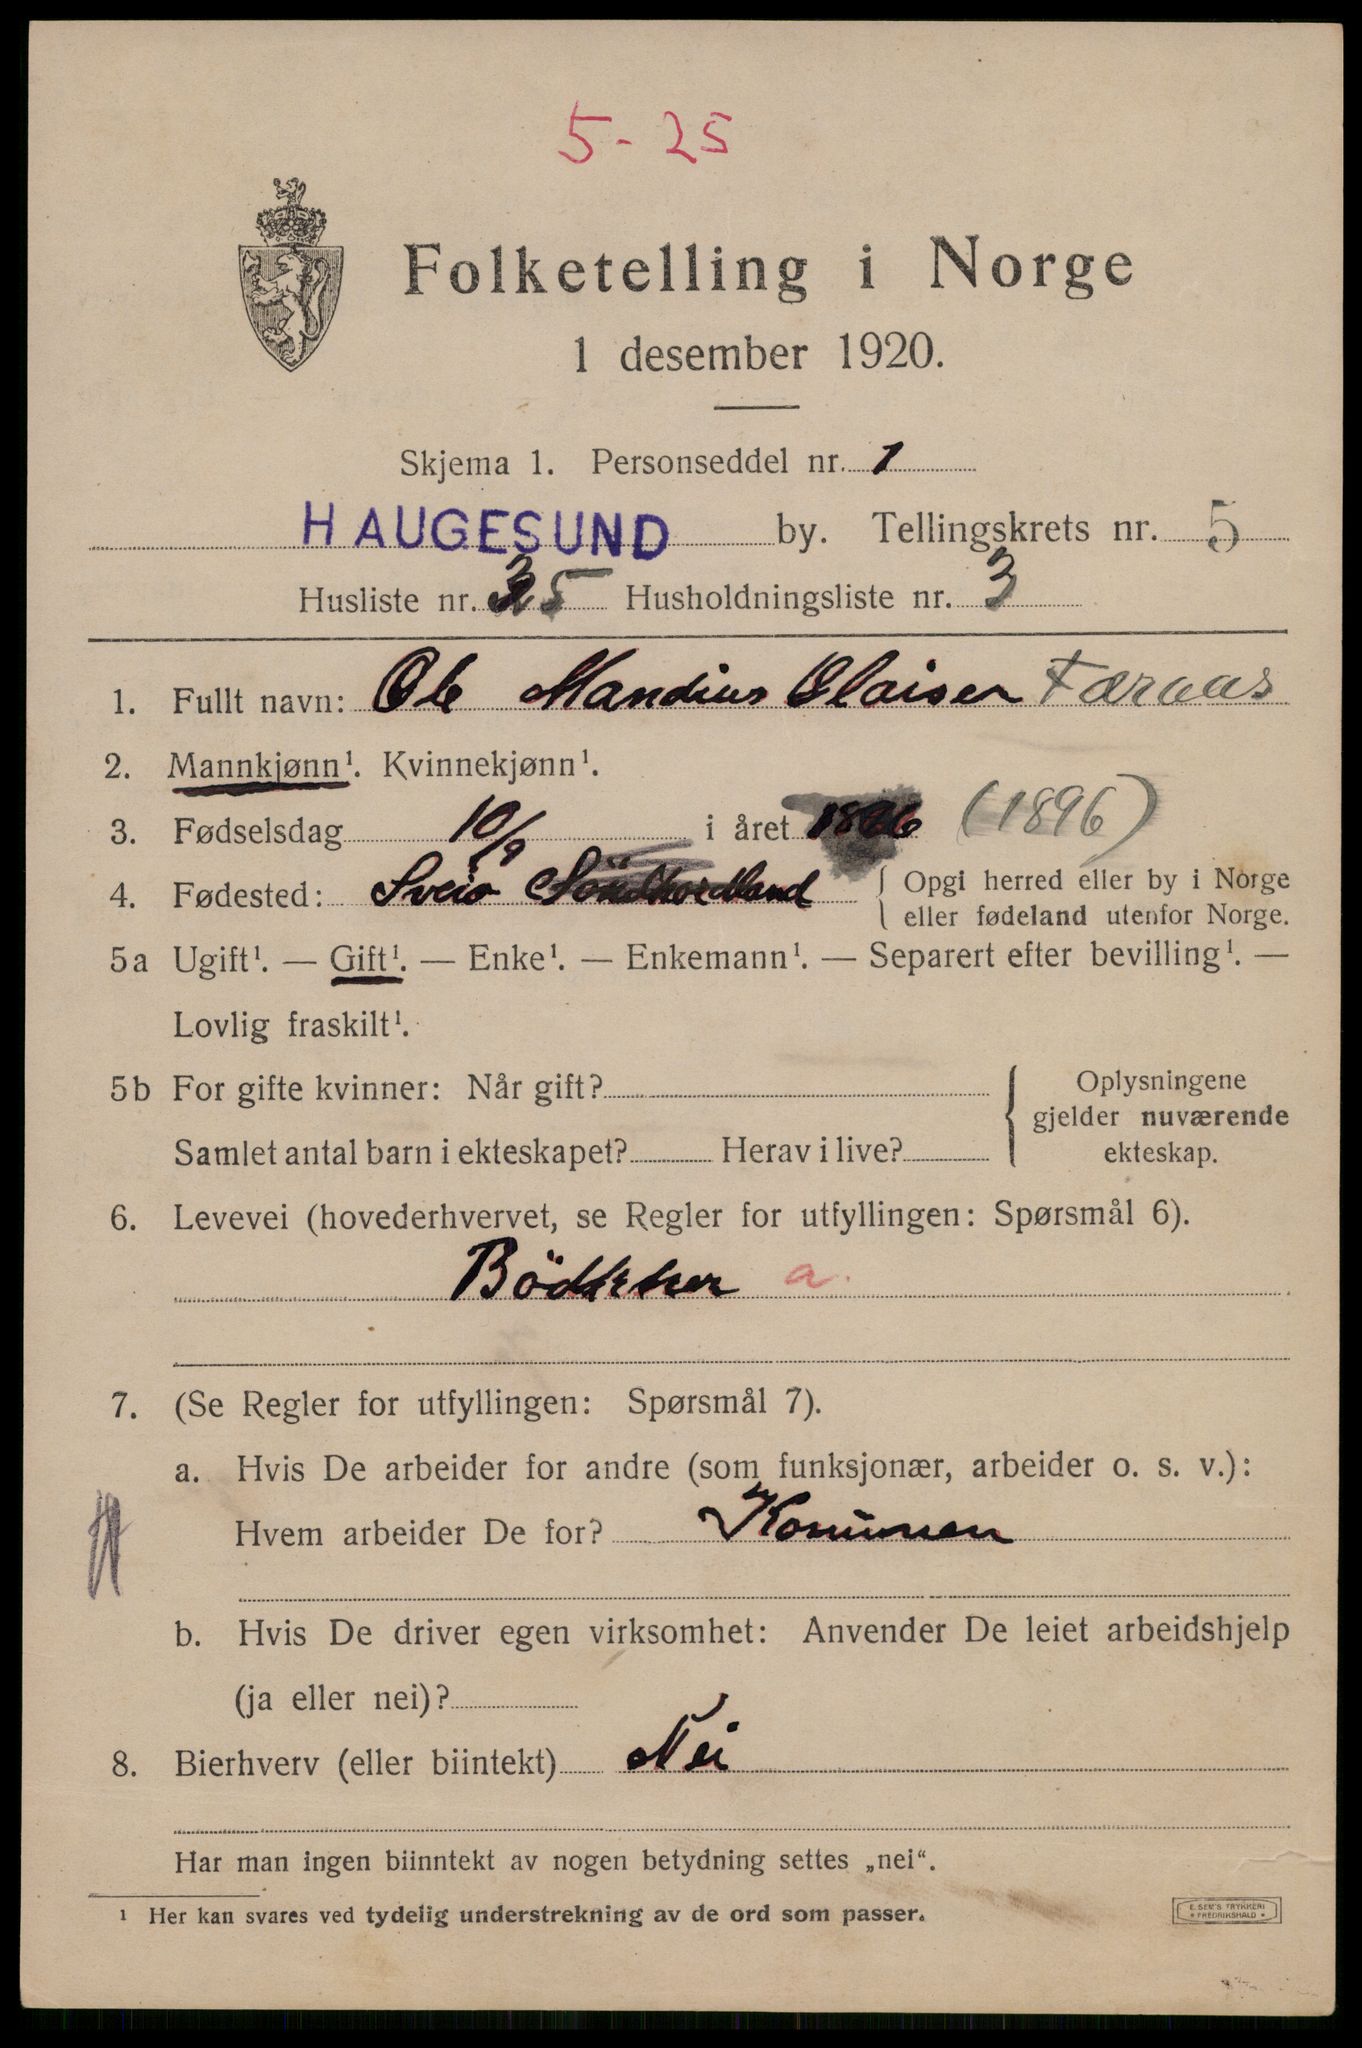 5 - 25
Folketelling i Norge
1 desember 1920.
Skjema 1. Personseddel nr. 1
HAUGESUND by. Tellingskrets nr. 5
Husliste nr. 35 Husholdningsliste nr. 3
1. Fullt navn: Ole Mandius Olaisen Færaas
2. Mannkjønn¹. Kvinnekjønn¹.
3. Fødselsdag 10/9 i året 1896 (1896)
4. Fødested: Sveio Söndhordland { Opgi herred eller by i Norge
eller fødeland utenfor Norge.
5a Ugift¹. — Gift¹. — Enke¹. — Enkemann¹. — Separert efter bevilling¹. —
Lovlig fraskilt¹.
5b For gifte kvinner: Når gift? { Oplysningene
gjelder nuværende
Samlet antal barn i ekteskapet? Herav i live? ekteskap.
6. Levevei (hovederhvervet, se Regler for utfyllingen: Spørsmål 6).
Bödtker a.
7. (Se Regler for utfyllingen: Spørsmål 7).
a. Hvis De arbeider for andre (som funksjonær, arbeider o. s. v.):
Hvem arbeider De for? Komunen
b. Hvis De driver egen virksomhet: Anvender De leiet arbeidshjelp
(ja eller nei)?
8. Bierhverv (eller biintekt) Nei
Har man ingen biinntekt av nogen betydning settes „nei“.
¹ Her kan svares ved tydelig understrekning av de ord som passer.
E. SEM'S TRYKKERI
* FREDRIKSHALD *